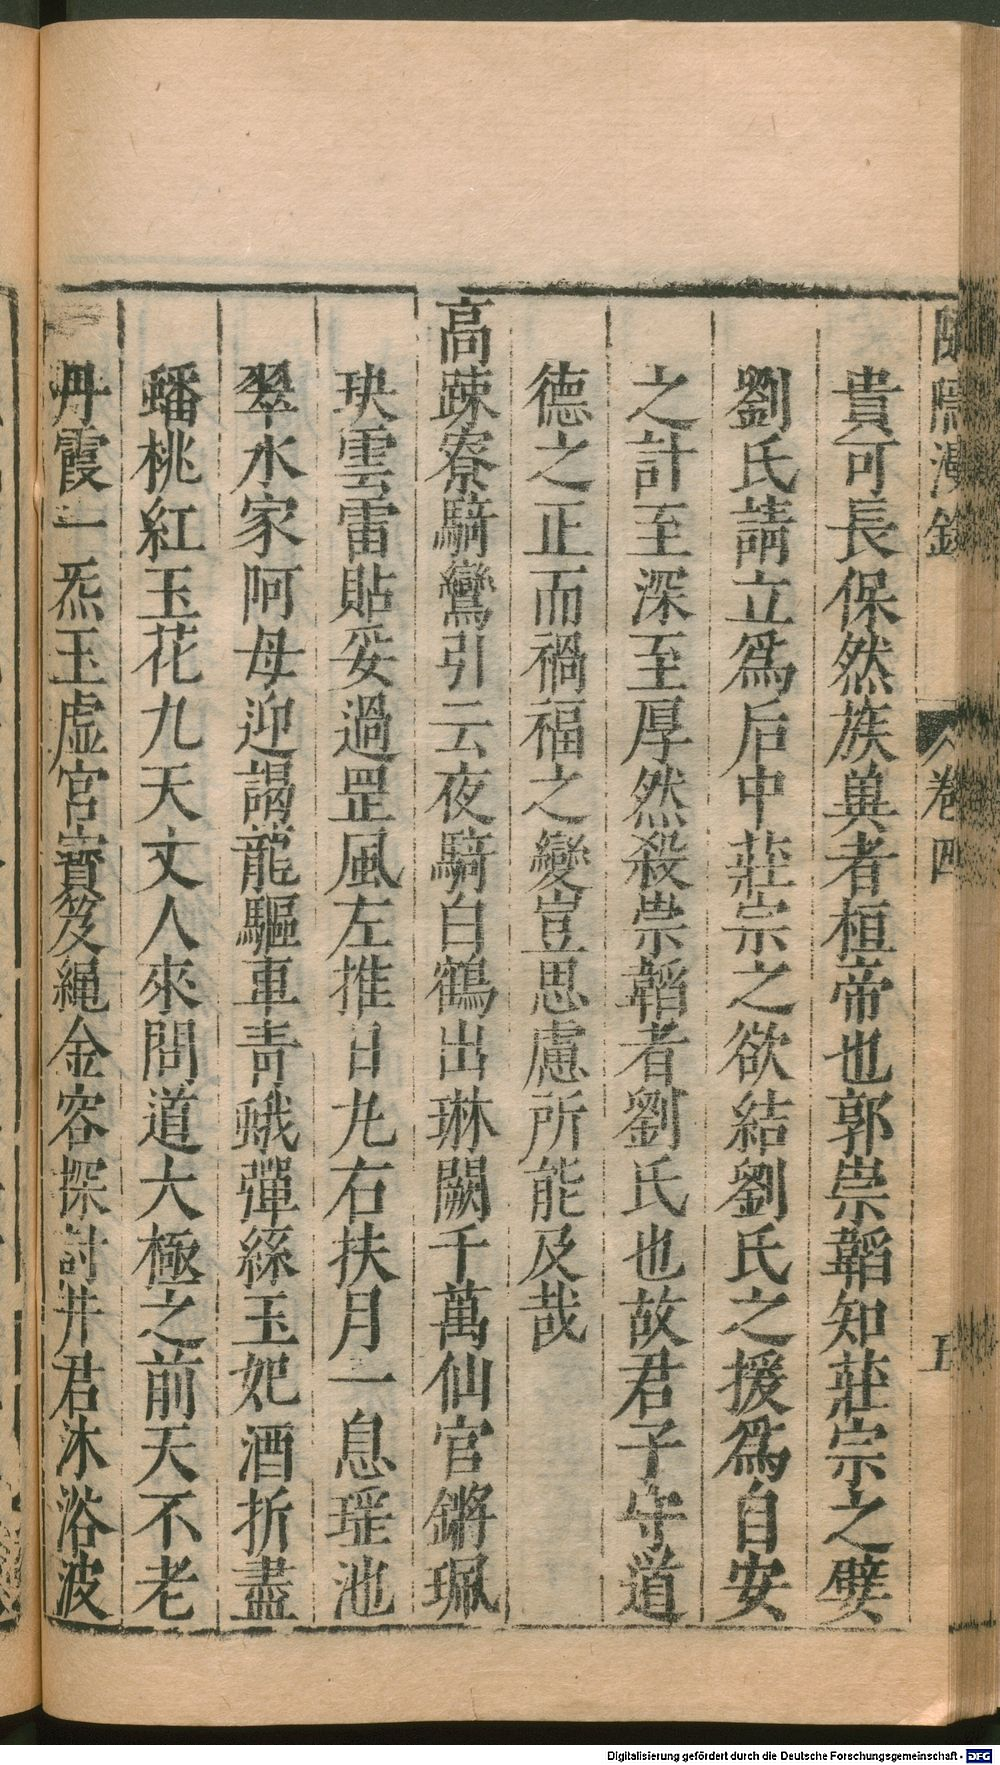 隨隱漫錄 卷四 五
貴可長保然族兾者桓帝也郭崇韜知莊宗之嬖
劉氏請立爲后中莊宗之欲結劉氏之援爲自安
之計至深至厚然殺崇韜者劉氏也故君子守道
德之正而禍福之變豈思慮所能及哉
高疎寮騎鸞引云夜騎白鶴出琳闕千萬仙官鏘珮
玦雲雷貼妥過罡風左推日九右扶月一息瑶池
翠水家阿母迎謁龍驅車青蛾彈絲玉妃酒折盡
蟠桃紅玉花九天文人來問道大極之前天不老
丹霞一炁玉虛宮寳笈繩金容探討井君沐浴波
Digitalisierung gefördert durch die Deutsche Forschungsgemeinschaft - DFG